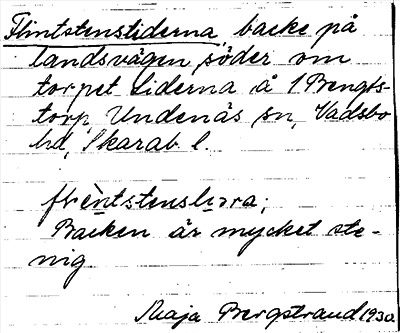 Flintstensliderna, backe på
landsvägen söder om
torpet Liderna å 1 Bengts-
torp, Undenäs sn, Vadsbo
hd, Skarab. l.
Backen är mycket ste-
nig
Maja Bergstrand 1930.